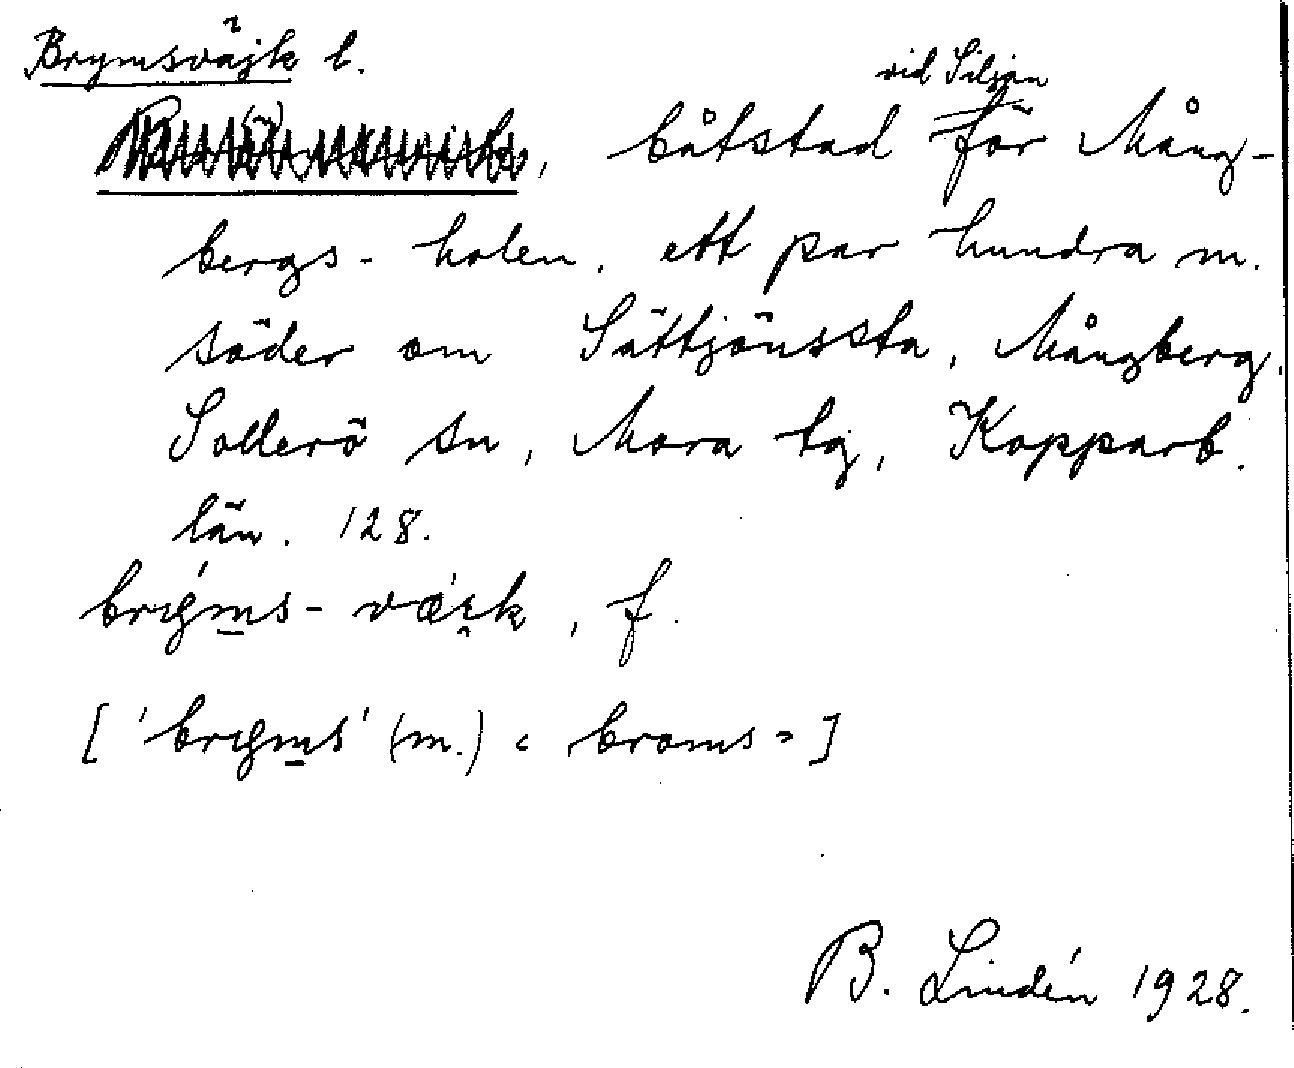 Brymsväjk l.
vid Siljan
, båtstad för Mång-
bergs-holen, ett par hundra m.
söder om Sättjönssta, Mångberg,
Sollerö sn, Mora tg, Kopparb.
län. 128.
brýms-væ̍ɪ̯k, f.
['bryms' (m.) « broms »]
B. Lindén 1928.